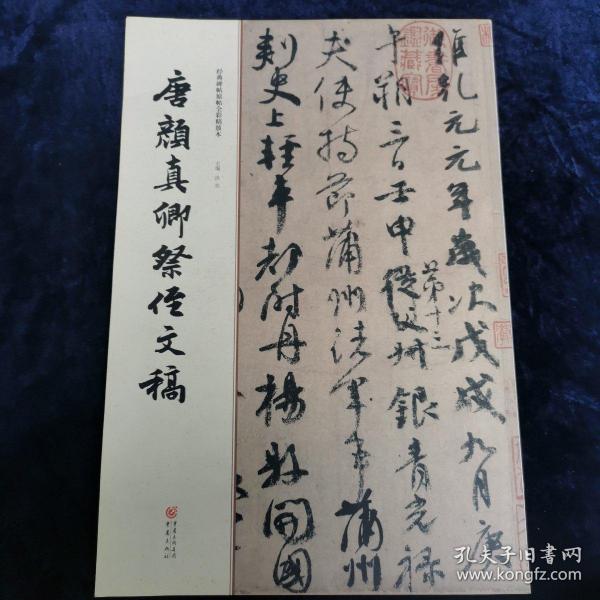 唐顏真卿祭侄文稿
经典碑帖原帖全彩精放本
主编
重庆出版集团
重庆出版社
維乾元元年歲次戊戌九月庚
午朔三日壬申從父
第十三
州銀青光祿
夫使持節蒲州諸軍事蒲州
刺史上輕車都尉丹楊縣開國
孔夫子旧书网
www.kongfz.com